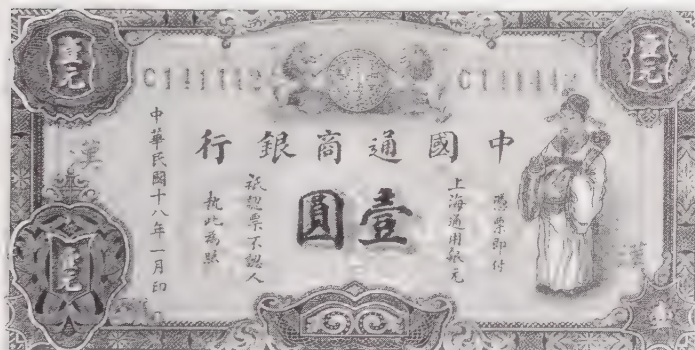 壹元
壹元
C111112
C111112
中國通商銀行
壹圓
憑票即付
上海通用銀元
祇認票不認人
執此為照
中華民國十八年一月印
漢
漢
壹元